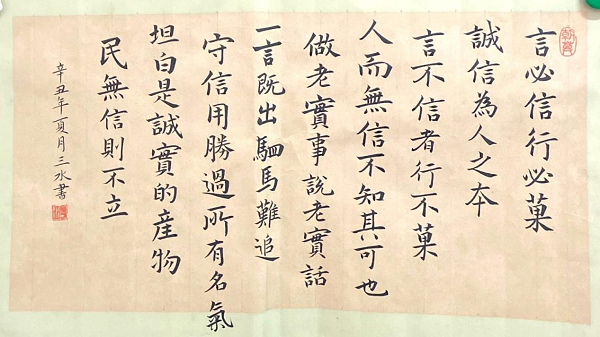 言必信行必菓
誠信為人之本
言不信者行不菓
人而無信不知其可也
做老實事說老實話
一言既出駟馬難追
守信用勝過所有名氣
坦白是誠實的産物
民無信則不立
辛丑年夏月三水書